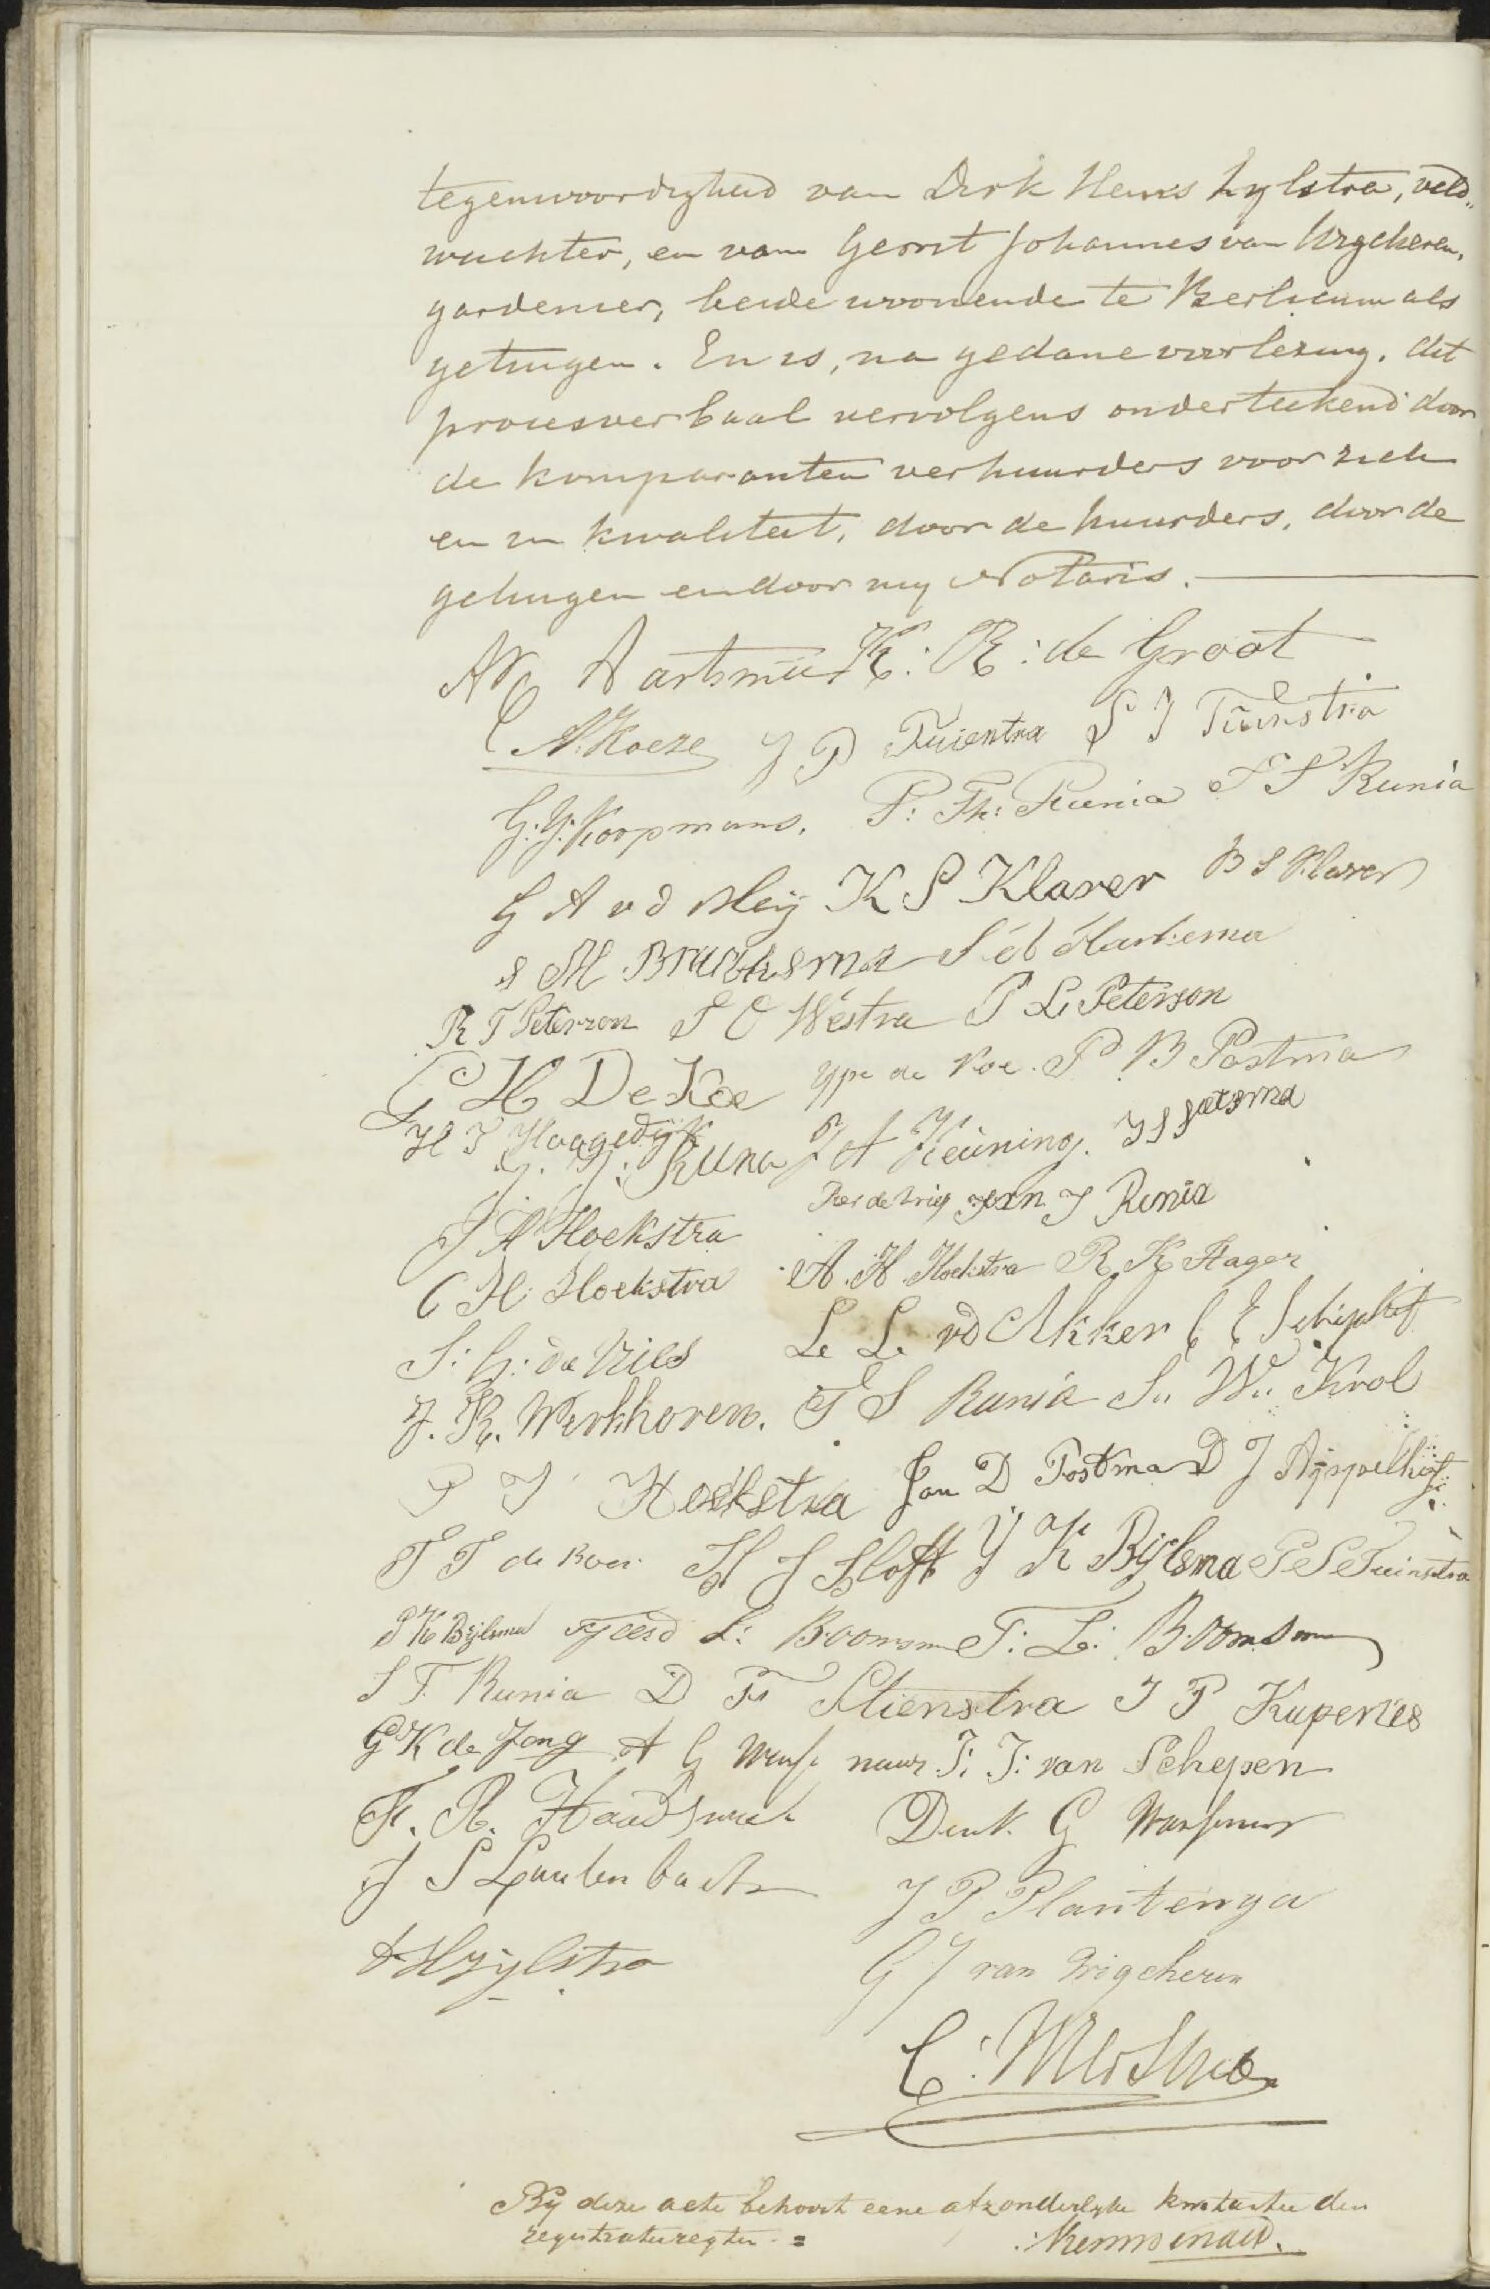 tegenwoordigheid van Dirk Hanses Zylstra, veld„
wachter, en van Gerrit Johannes van Wrgcheren,
gardenier, beide woonende te Berlicum als
getuigen. En is, na gedane voorlezing, dit
procesverbaal vervolgens onderteekend door
de komparanten verhuurders voor zich
en in kwaliteit, door de huurders, door de
getuigen en door my Notaris.
K: R: de Groot
A. Koeze J P Tuientra S J Tuinstra
G: G: Koopmans. P: Th: Runia T S Runia
G A v d Meij K S Klaver B S Klaver
S M Bruinsma
R T Peterzon S O Westra P L Peterson
G H De Koe Ype de Koe. P B Postma
H T Haagedijk
J. J: Runa J A Keuning. J S Saetsma
Pier de Vries Jan J Runia
J A Hoekstra
C H. Hoekstra A. H. Hoekstra R K Hager
S: G: de Vries L. L. vd Akker
J. K. Werkhoven. T S Runia S. W. Krol
P J Hoekstra Jan D Postma D J Appelhof
T T de Boer H J Sloft Y K Bijlsma P S Tuinstra
P K Bijlsma Tjeerd L: Boomsm T: L: Boomsm
S T. Runia D F Stienstra J P Kuperus
G K de Jong A G J: J: van Schepen
F. R. Dirk G
J S Lautenbach
J P Plantenga
D H Zijlstra
G J van Wrigcheren
C:
By deze acte behoort eene afzonderlyke kwitantie der
registratieregten. =